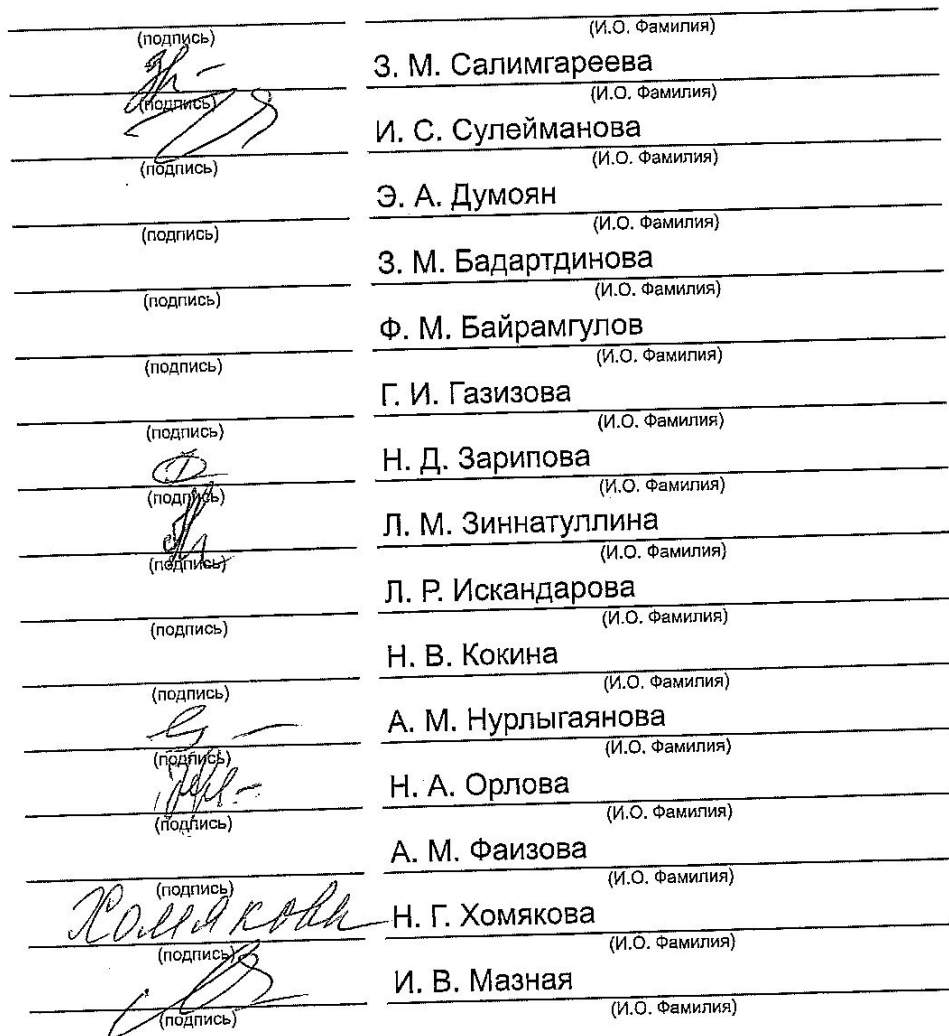 (подпись) (И.О. Фамилия)
З. М. Салимгареева
(подпись) (И.О. Фамилия)
И. С. Сулейманова
(подпись) (И.О. Фамилия)
Э. А. Думоян
(подпись) (И.О. Фамилия)
З. М. Бадартдинова
(подпись) (И.О. Фамилия)
Ф. М. Байрамгулов
(подпись) (И.О. Фамилия)
Г. И. Газизова
(подпись) (И.О. Фамилия)
Н. Д. Зарипова
(подпись) (И.О. Фамилия)
Л. М. Зиннатуллина
(подпись) (И.О. Фамилия)
Л. Р. Искандарова
(подпись) (И.О. Фамилия)
Н. В. Кокина
(подпись) (И.О. Фамилия)
А. М. Нурлыгаянова
(подпись) (И.О. Фамилия)
Н. А. Орлова
(подпись) (И.О. Фамилия)
А. М. Фаизова
(подпись) (И.О. Фамилия)
Хомякова Н. Г. Хомякова
(подпись) (И.О. Фамилия)
И. В. Мазная
(подпись) (И.О. Фамилия)